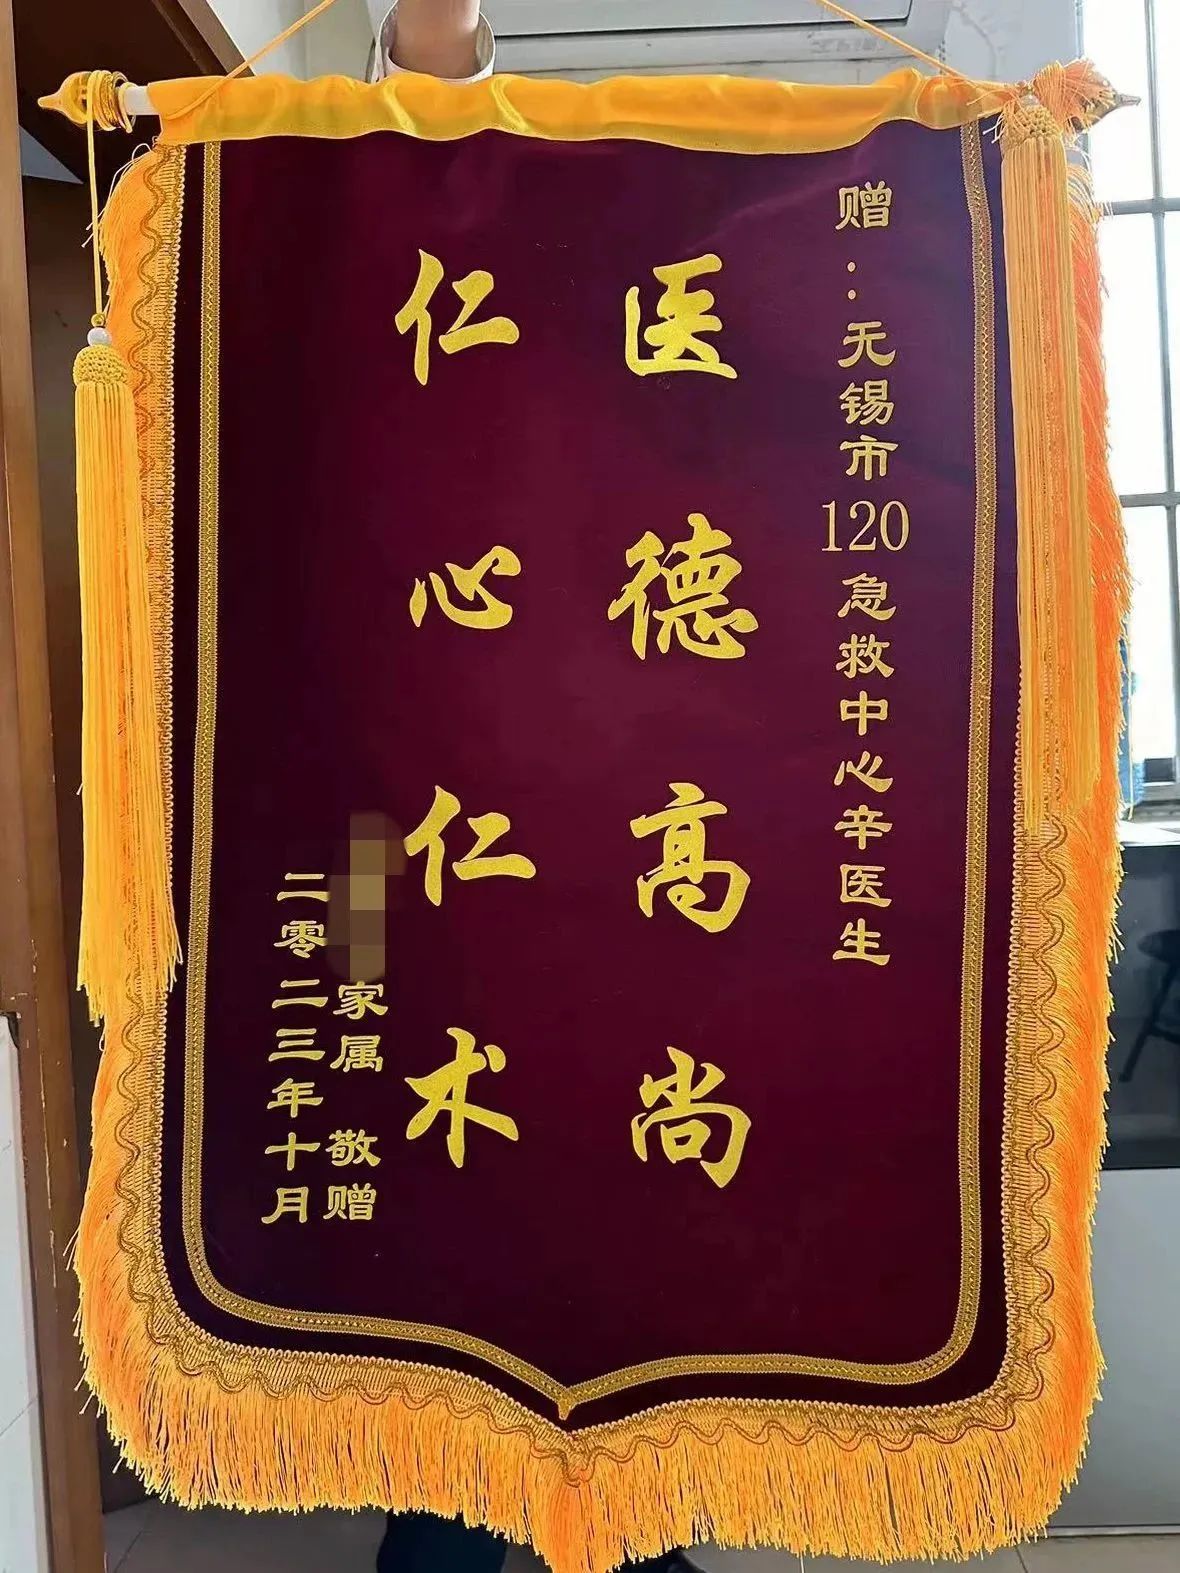 赠：无锡市120急救中心辛医生
医德高尚
仁心仁术
家属 敬赠
二零二三年十月